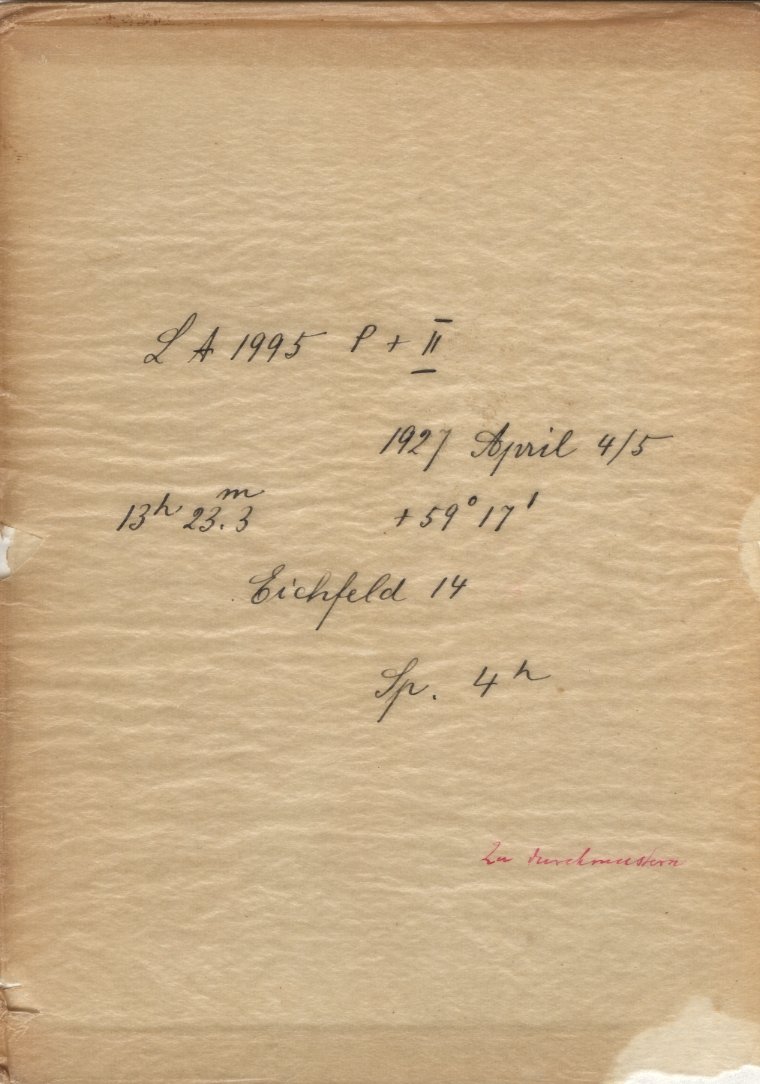 L A 1995 P + II
1927 April 4/5
13ʰ 23.3ᵐ +59° 17'
Eichfeld 14
Sp. 4ʰ
Zu durchmustern